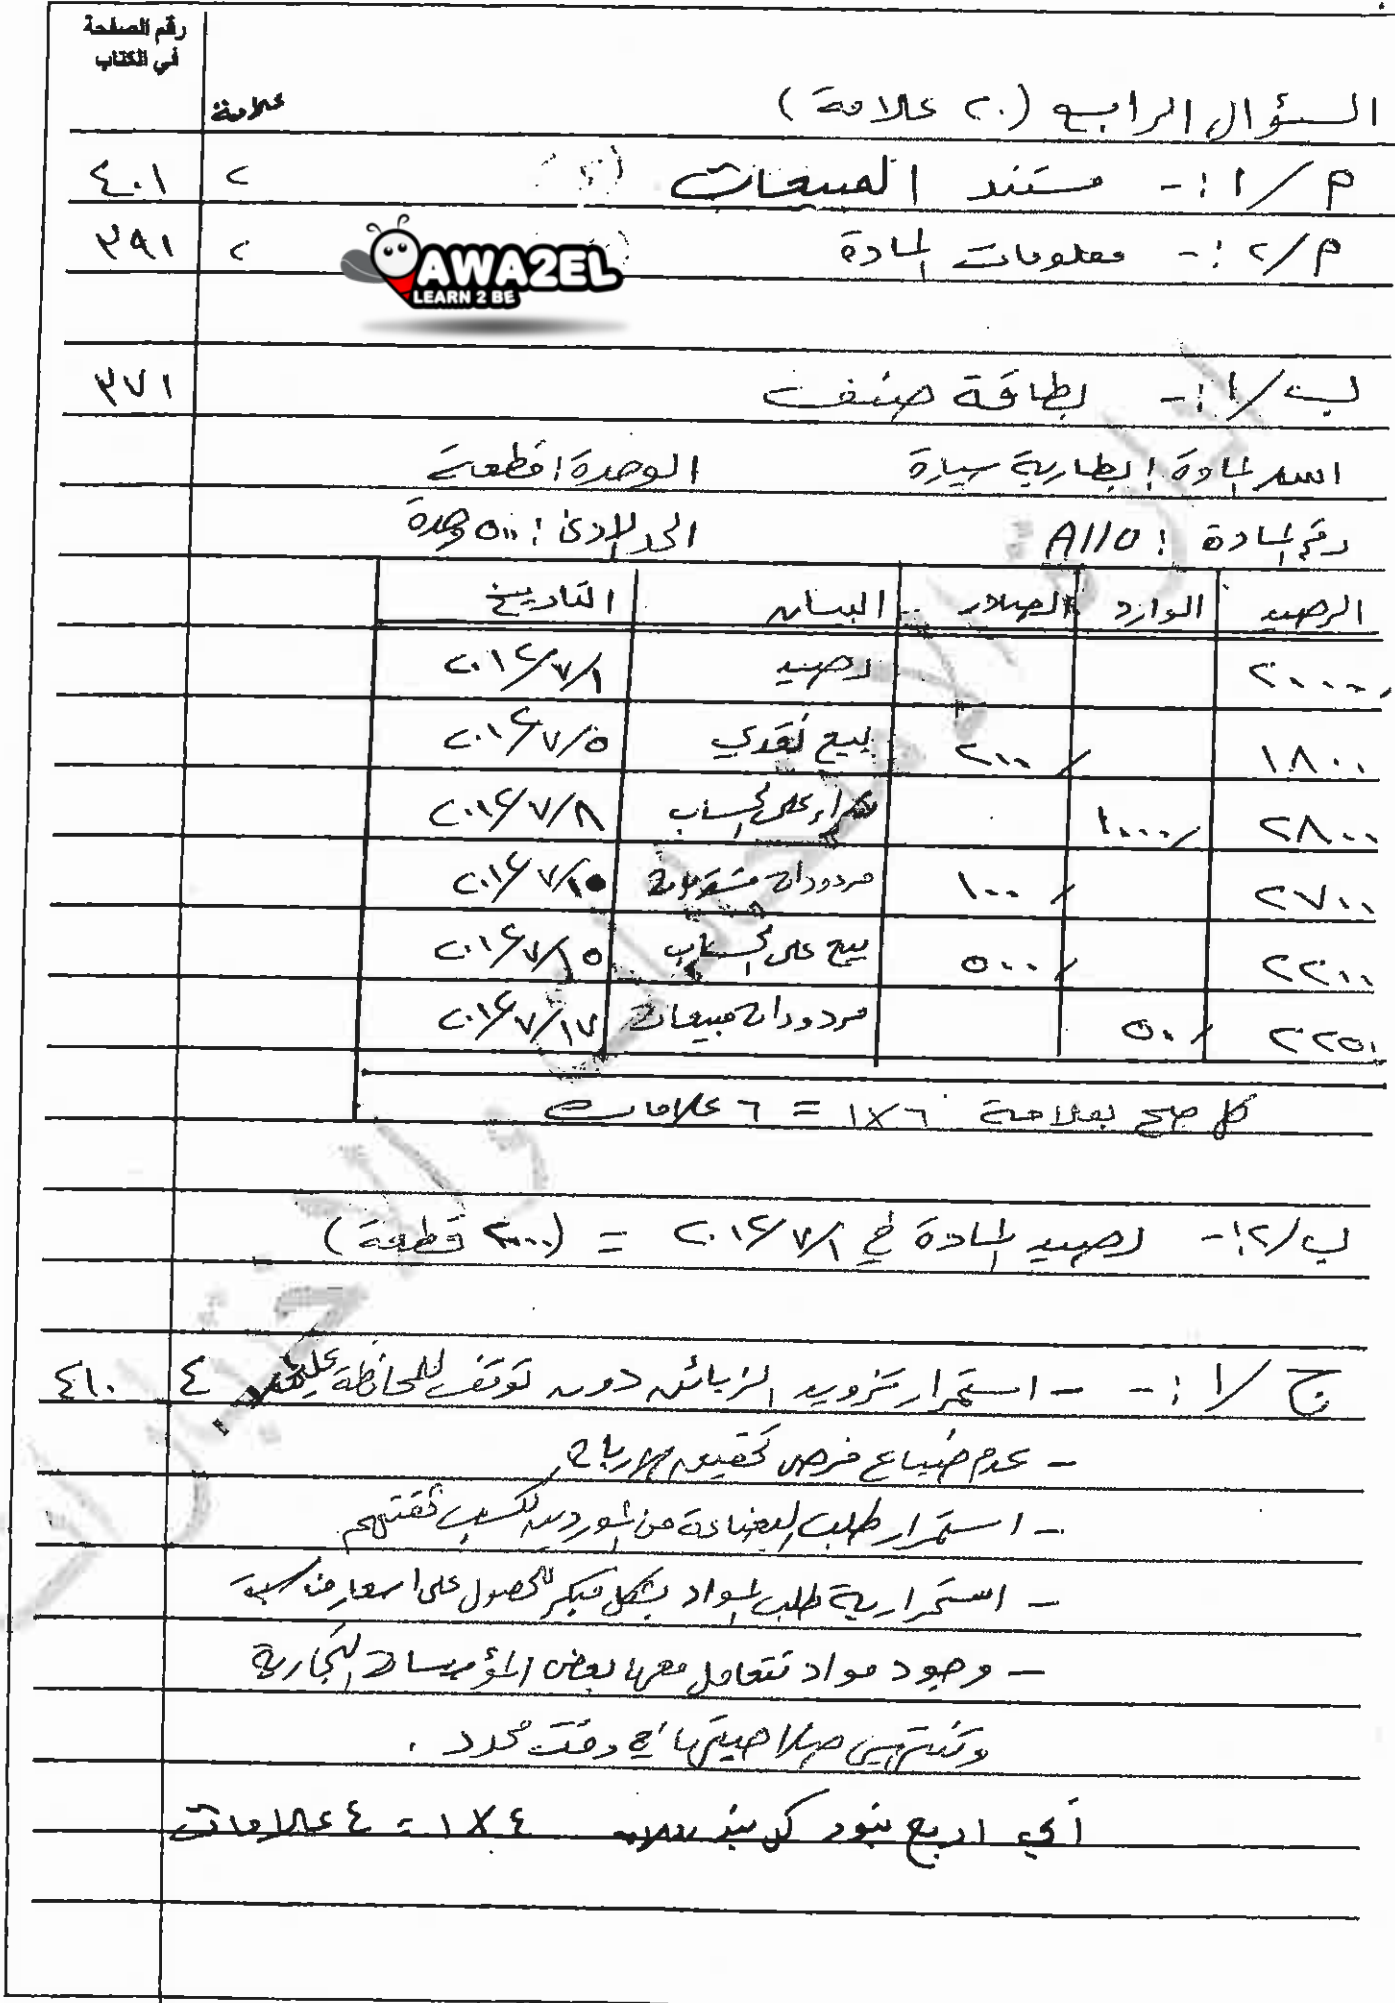 رقم الصفحة
في الكتاب
علامة
السؤال الرابع (٢٠ علامة)
م/١:- مستند المبيعات ٢ ٤٠١
م/٢:- معلومات المادة ٢ ٣٩١
AWA2EL
LEARN 2 BE
ب/١:- بطاقة صنف ٣٧١
اسم المادة: بطارية سيارة الوحدة: قطعة
رقم المادة: A110 الحد الأدنى: ٥٠٠ وحدة
الرصيد الوارد الصادر البيان التاريخ
٢٠٠٠ رصيد ٢٠١٤/٧/١
١٨٠٠ ٢٠٠ بيع نقدي ٢٠١٤/٧/٥
٢٨٠٠ ١٠٠٠ شراء على الحساب ٢٠١٤/٧/٨
٢٧٠٠ ١٠٠ مردودات مشتريات ٢٠١٤/٧/١٠
٢٢٠٠ ٥٠٠ بيع على الحساب ٢٠١٤/٧/١٥
٢٢٥٠ ٥٠ مردودات مبيعات ٢٠١٤/٧/١٧
كل صح بعلامة ٦×١ = ٦ علامات
ب/٢:- رصيد المادة في ٢٠١٤/٧/١ = (٢٠٠٠ قطعة)
ج/١:- - استمرار تزويد الزبائن دون توقف للمحافظة عليهم. ٤ ٤١٠
- عدم ضياع فرص تحقيق الارباح
- استمرار طلب البضاعة من الموردين لكسب ثقتهم
- استمرارية طلب المواد بشكل مبكر للحصول على اسعار مناسبة
- وجود مواد تتعامل معها بعض المؤسسات التجارية
وتنتهي صلاحيتها في وقت محدد.
أي اربع بنود كل بند ٤×١=٤ علامات